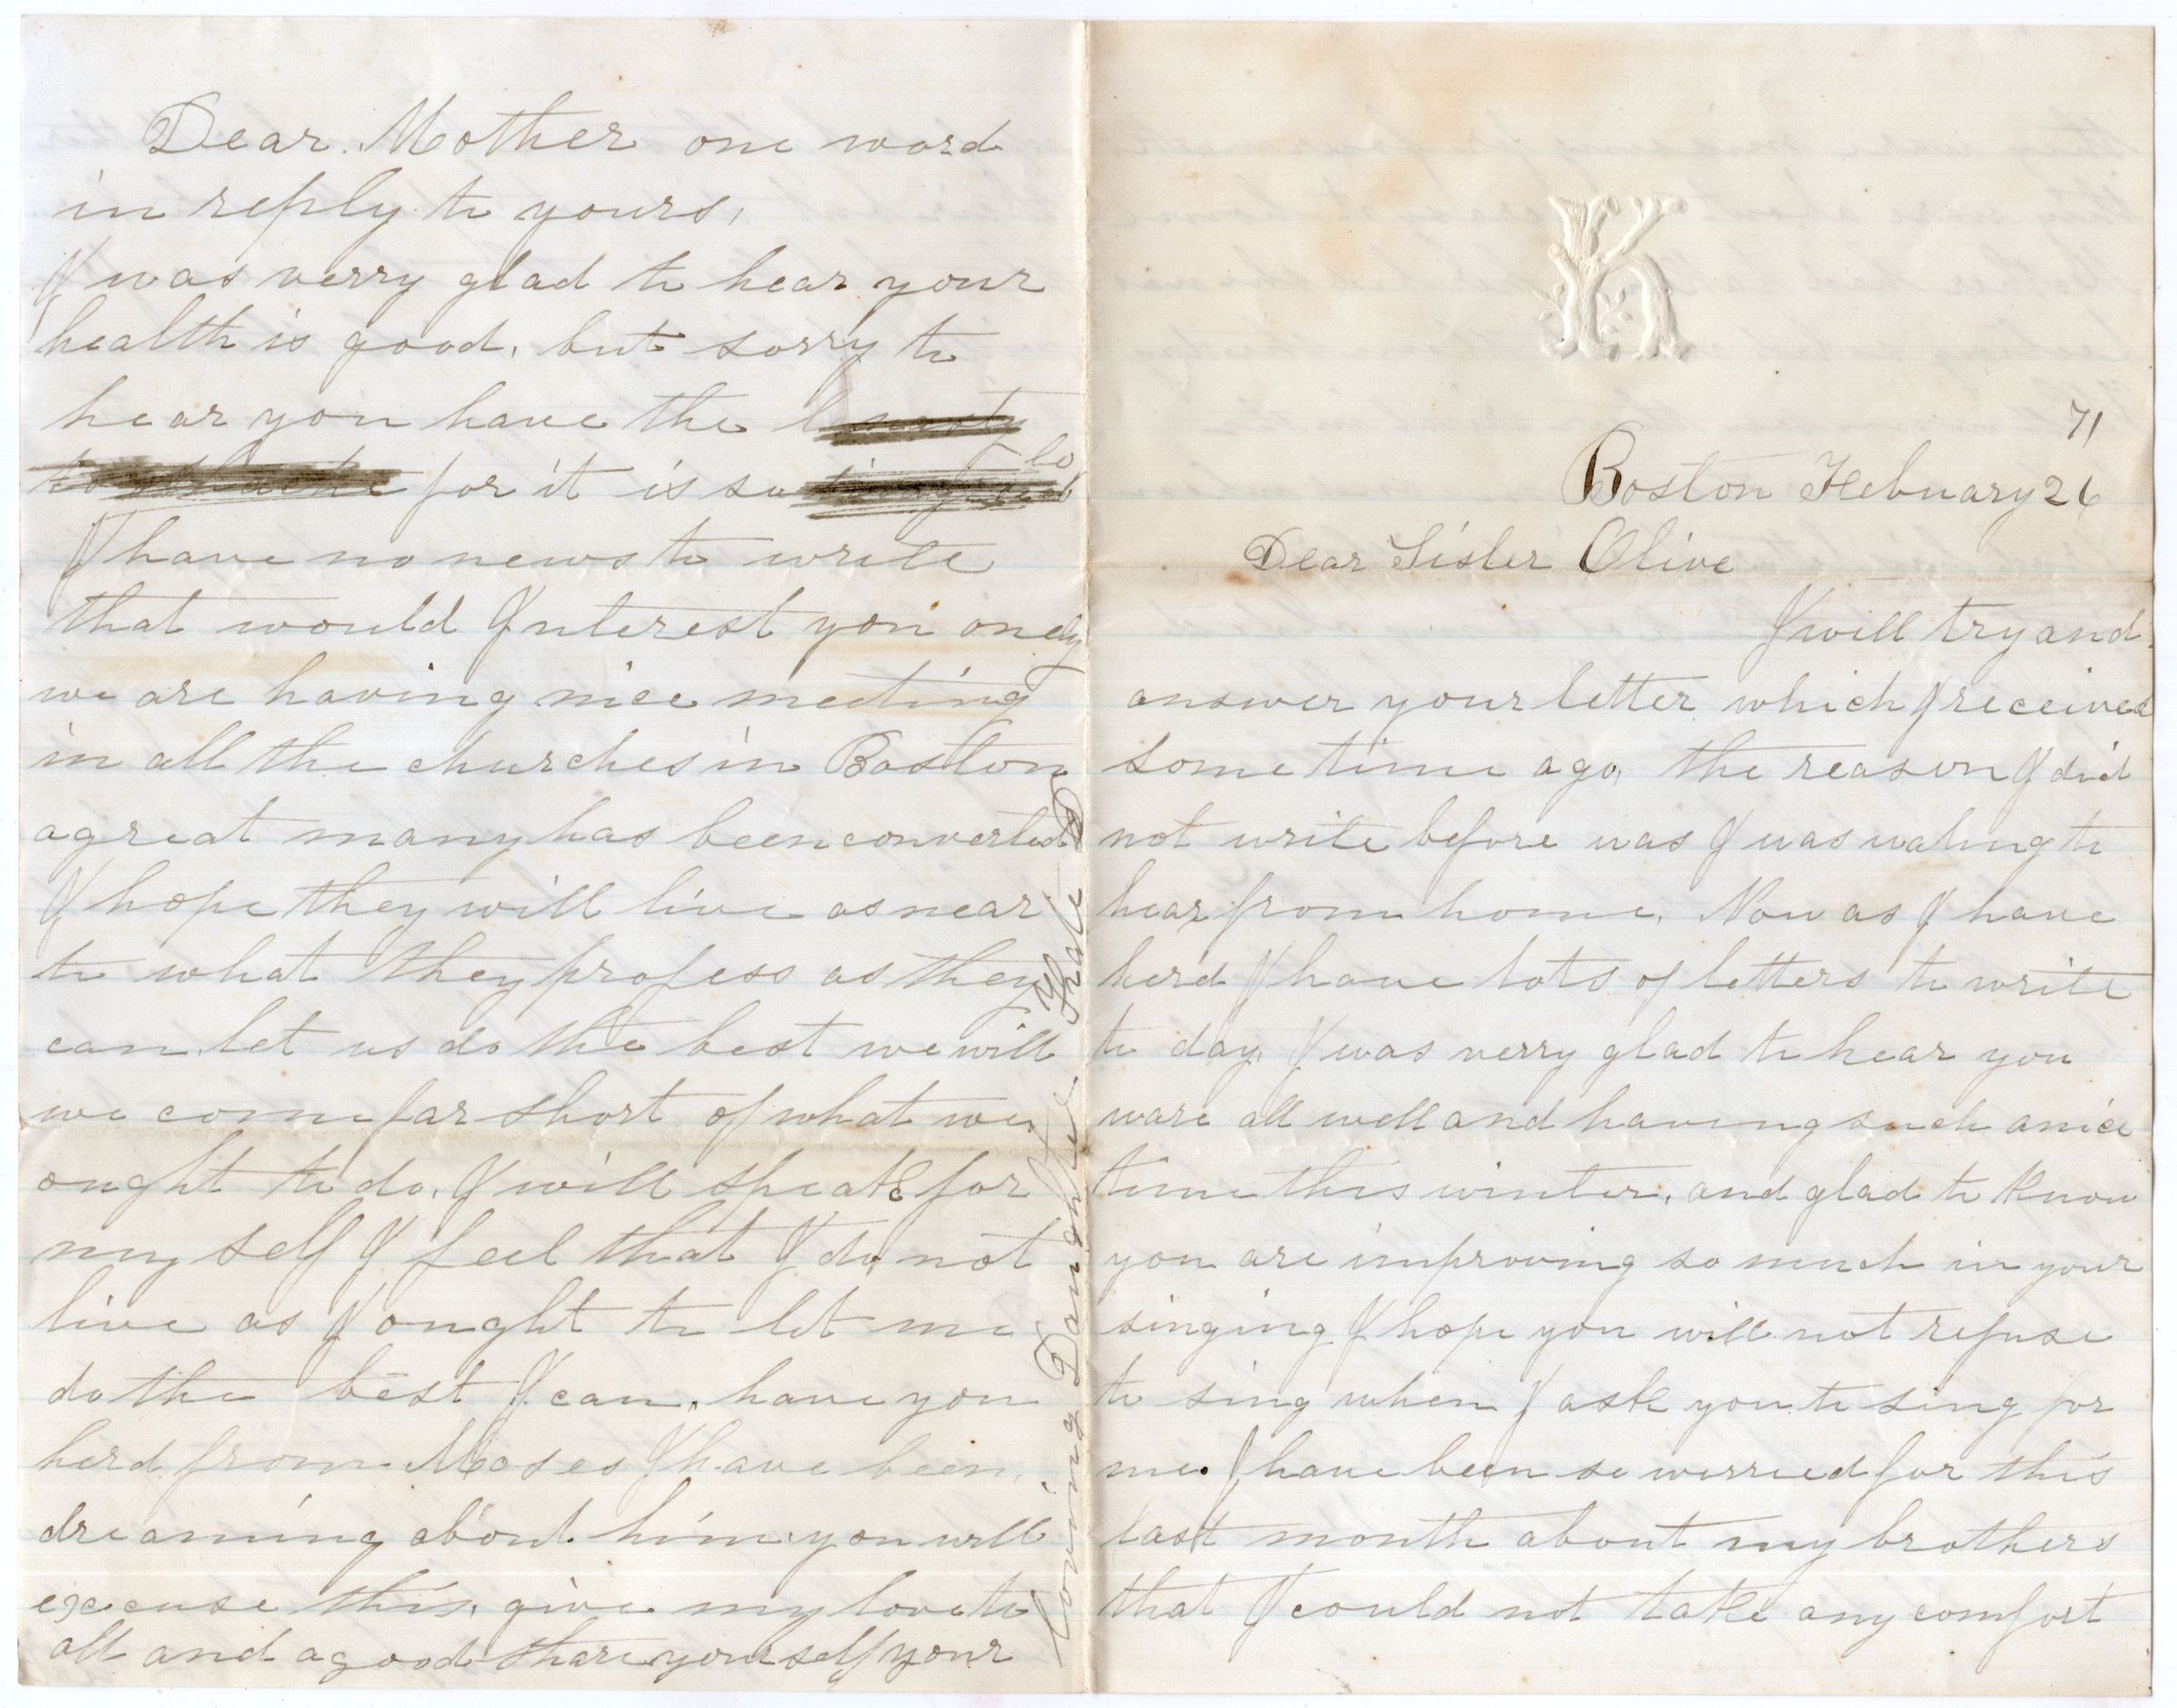 Dear Mother one word
in reply to yours,
I was verry glad to hear your
health is good, but sorry to
hear you have the
for it is so
I have no news to write
that would Interest you only
we are having nice meeting
in all the churches in Boston
a great many has been converted
I hope they will live as near
to what they profess as they
can. let us do the best we will
we come far short of what we
ought to do. I will speak for
my self I feel that I do not
live as I ought to let me
do the best I can, have you
herd from Moses I have been
dreaming about him you will
excuse this, give my love to
all and a good share yourself your
loving Daughter Kate D
K
71
Boston Febuary 26
Dear Sister Olive
I will try and
answer your letter which I received
some time ago, the reason I did
not write before was I was wating to
hear from home, Now as I have
herd I have lots of letters to write
to day, I was verry glad to hear you
ware all well and having such a nice
time this winter, and glad to know
you are improving so much in your
singing I hope you will not refuse
to sing when I ask you to sing for
me. I have been so worried for this
last month about my brothers
that I could not take any comfort